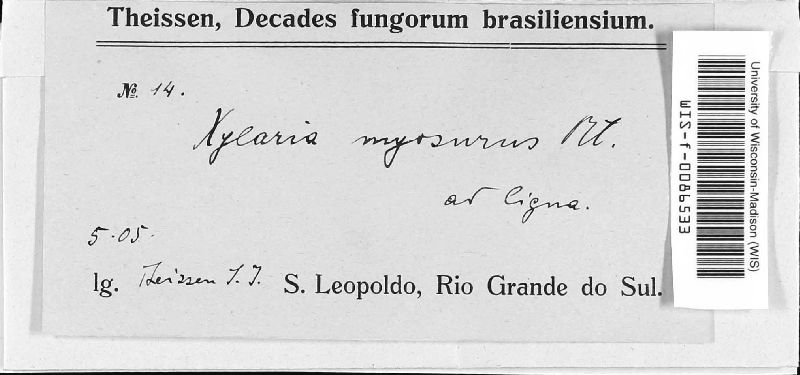 Theissen, Decades fungorum brasiliensium.
№ 14.
Xylaria myosurus Mt.
ad ligna.
5.05.
lg. Theissen S.J. S. Leopoldo, Rio Grande do Sul.
University of Wisconsin-Madison (WIS)
WIS-f-0086533